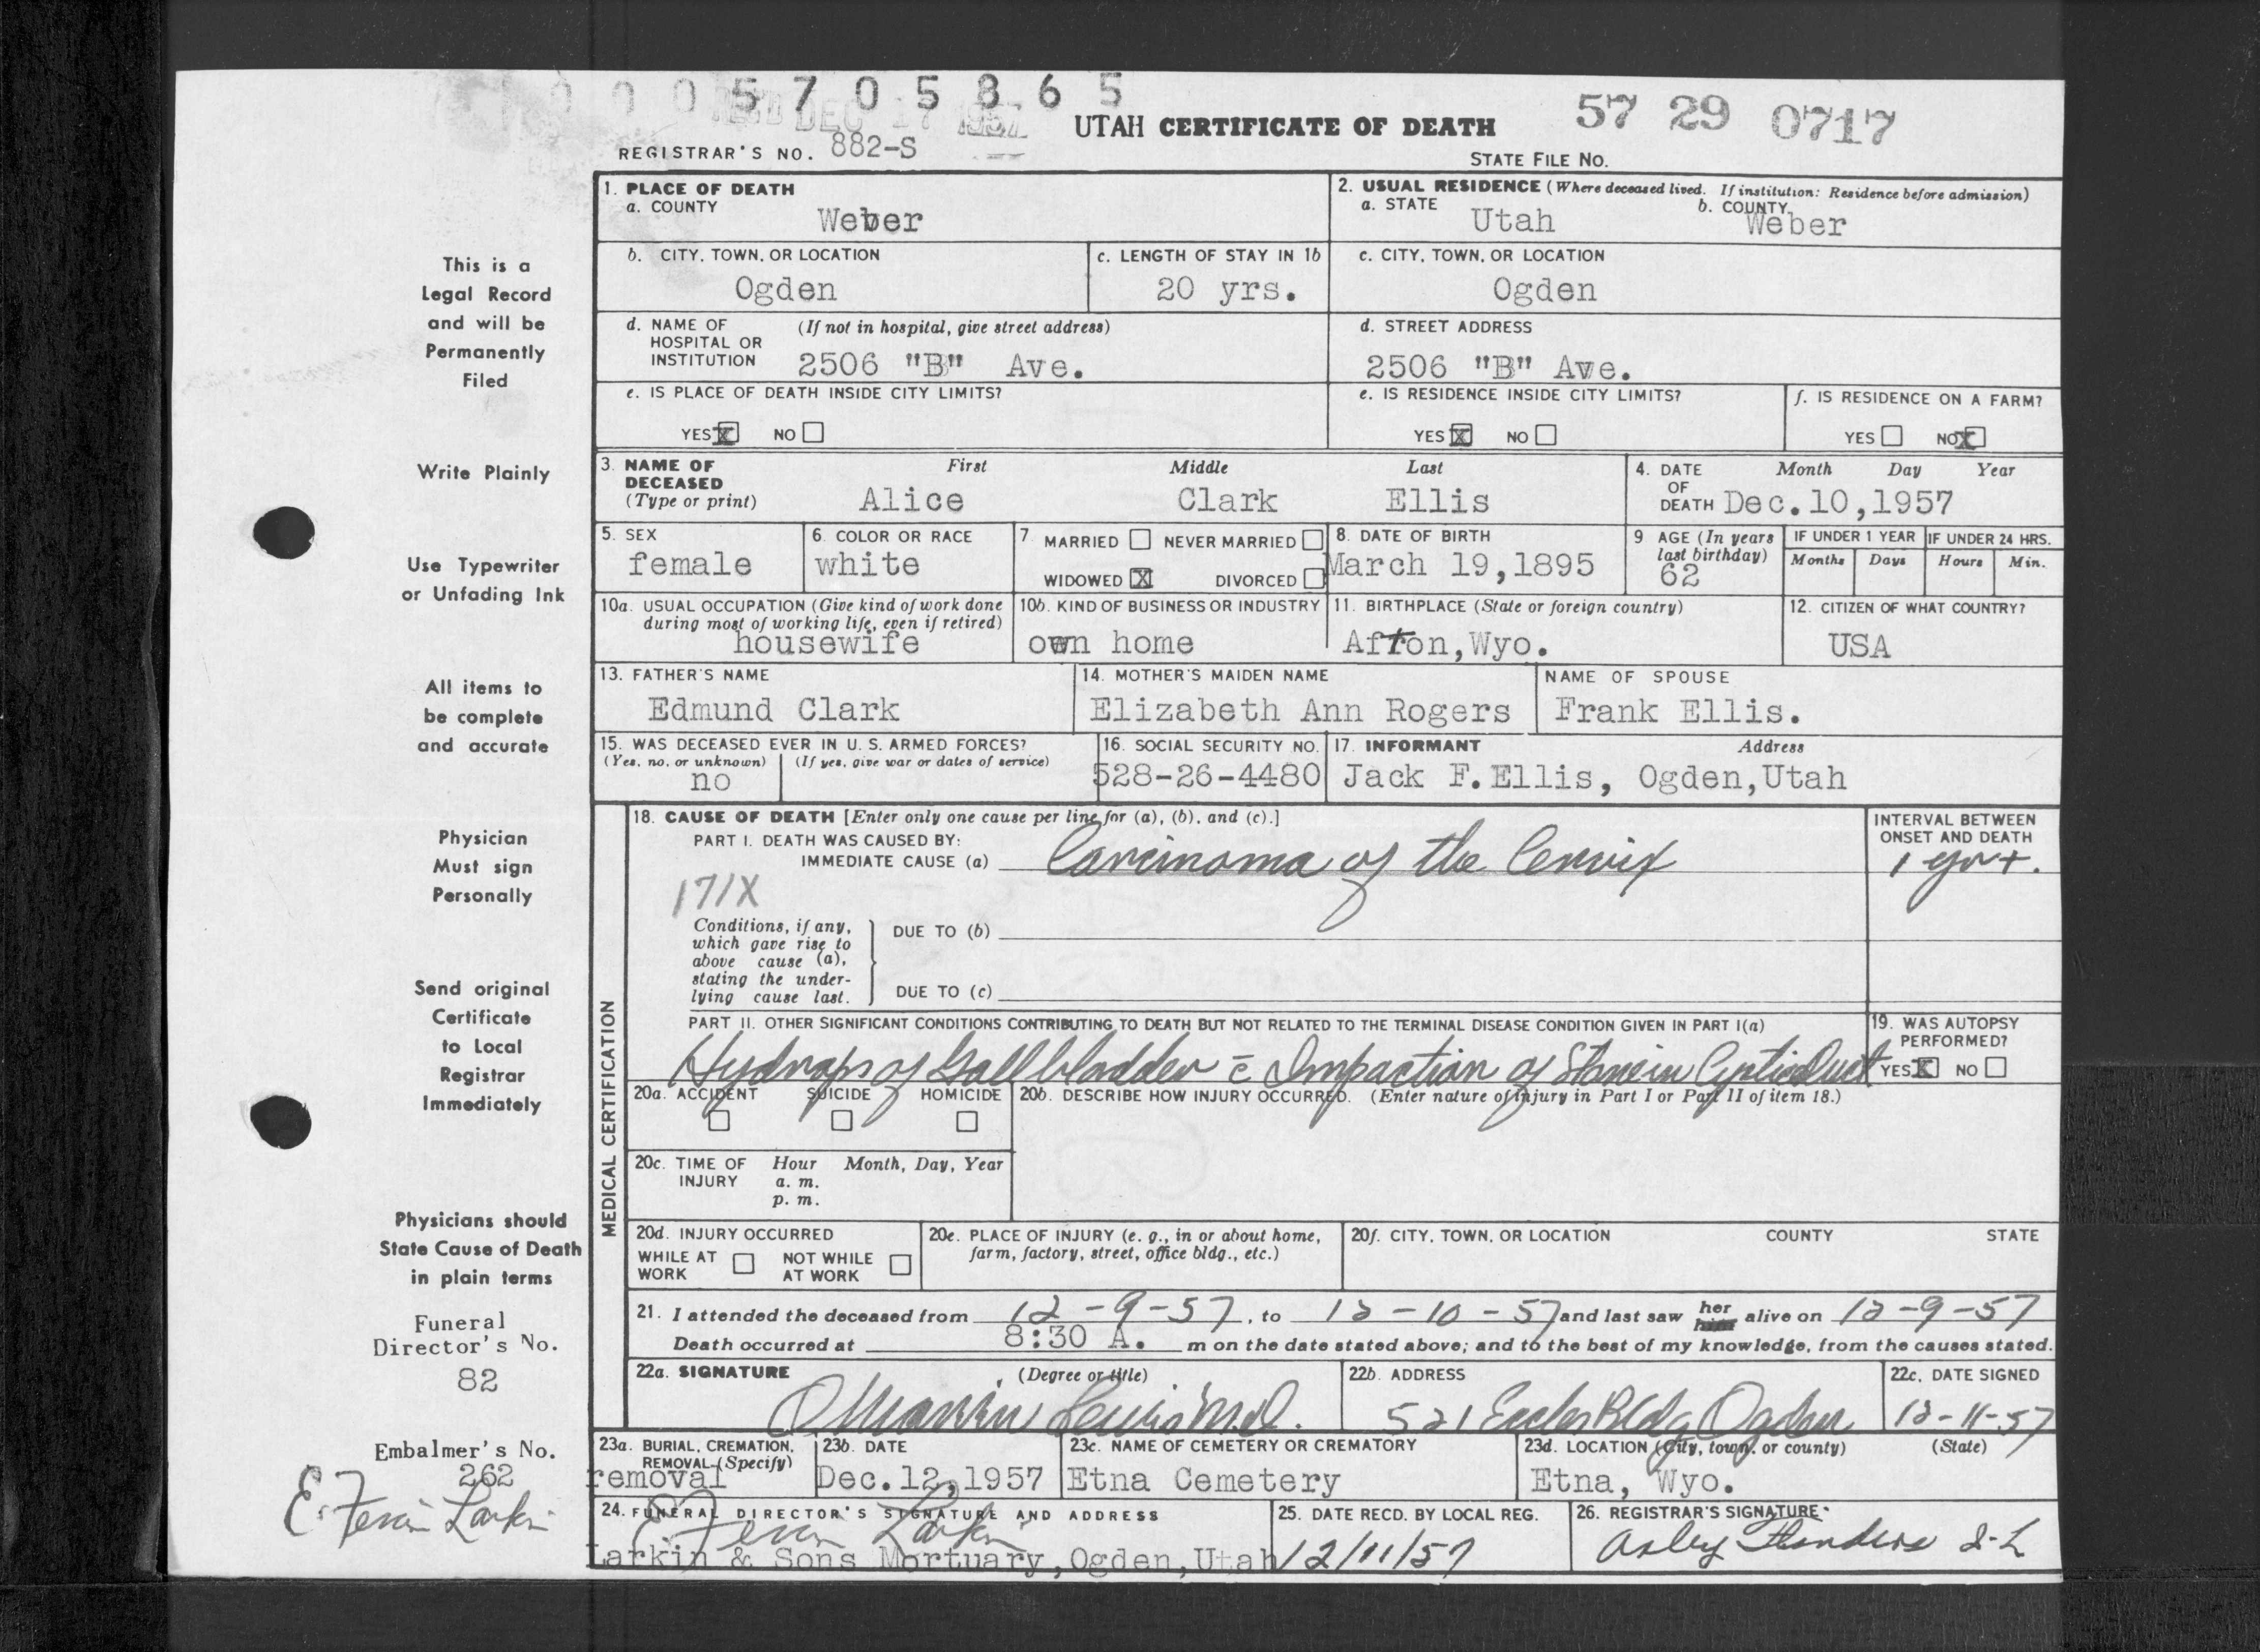 0 0 0 5 7 0 5 8 6 5
REC'D DEC 17 1957
57 29 0717
UTAH CERTIFICATE OF DEATH
REGISTRAR'S NO. 882-S
STATE FILE NO.
1. PLACE OF DEATH
a. COUNTY
Weber
2. USUAL RESIDENCE (Where deceased lived. If institution: Residence before admission)
a. STATE
Utah
b. COUNTY
Weber
b. CITY, TOWN, OR LOCATION
Ogden
c. LENGTH OF STAY IN 1b
20 yrs.
c. CITY, TOWN, OR LOCATION
Ogden
d. NAME OF HOSPITAL OR INSTITUTION
(If not in hospital, give street address)
2506 "B" Ave.
d. STREET ADDRESS
2506 "B" Ave.
e. IS PLACE OF DEATH INSIDE CITY LIMITS?
YES X NO
e. IS RESIDENCE INSIDE CITY LIMITS?
YES X NO
f. IS RESIDENCE ON A FARM?
YES NO X
3. NAME OF DECEASED
(Type or print)
First Middle Last
Alice Clark Ellis
4. DATE OF DEATH
Month Day Year
Dec.10,1957
5. SEX
female
6. COLOR OR RACE
white
7. MARRIED NEVER MARRIED
WIDOWED X DIVORCED
8. DATE OF BIRTH
March 19,1895
9 AGE (In years last birthday)
62
IF UNDER 1 YEAR
Months Days
IF UNDER 24 HRS.
Hours Min.
10a. USUAL OCCUPATION (Give kind of work done during most of working life, even if retired)
housewife
10b. KIND OF BUSINESS OR INDUSTRY
own home
11. BIRTHPLACE (State or foreign country)
Afton,Wyo.
12. CITIZEN OF WHAT COUNTRY?
USA
13. FATHER'S NAME
Edmund Clark
14. MOTHER'S MAIDEN NAME
Elizabeth Ann Rogers
NAME OF SPOUSE
Frank Ellis.
15. WAS DECEASED EVER IN U. S. ARMED FORCES?
(Yes, no, or unknown) (If yes, give war or dates of service)
no
16. SOCIAL SECURITY NO.
528-26-4480
17. INFORMANT Address
Jack F.Ellis, Ogden,Utah
MEDICAL CERTIFICATION
18. CAUSE OF DEATH [Enter only one cause per line for (a), (b), and (c).]
PART I. DEATH WAS CAUSED BY:
IMMEDIATE CAUSE (a) Carcinoma of the Cervix
INTERVAL BETWEEN ONSET AND DEATH
1 yr +.
171X
Conditions, if any, which gave rise to above cause (a), stating the underlying cause last.
DUE TO (b)
DUE TO (c)
PART II. OTHER SIGNIFICANT CONDITIONS CONTRIBUTING TO DEATH BUT NOT RELATED TO THE TERMINAL DISEASE CONDITION GIVEN IN PART I(a)
Hydrops of Gallbladder c̄ Impaction of Stone in Cystic Duct
19. WAS AUTOPSY PERFORMED?
YES X NO
20a. ACCIDENT SUICIDE HOMICIDE
20b. DESCRIBE HOW INJURY OCCURRED. (Enter nature of injury in Part I or Part II of item 18.)
20c. TIME OF INJURY
Hour Month, Day, Year
a. m.
p. m.
20d. INJURY OCCURRED
WHILE AT WORK NOT WHILE AT WORK
20e. PLACE OF INJURY (e. g., in or about home, farm, factory, street, office bldg., etc.)
20f. CITY, TOWN, OR LOCATION COUNTY STATE
21. I attended the deceased from 12-9-57, to 12-10-57 and last saw her him alive on 12-9-57
Death occurred at 8:30 A. m on the date stated above; and to the best of my knowledge, from the causes stated.
22a. SIGNATURE (Degree or title)
O Marvin Lewis M.D.
22b. ADDRESS
521 Eccles Bldg Ogden
22c. DATE SIGNED
12-11-57
23a. BURIAL, CREMATION, REMOVAL (Specify)
removal
23b. DATE
Dec.12,1957
23c. NAME OF CEMETERY OR CREMATORY
Etna Cemetery
23d. LOCATION (City, town, or county) (State)
Etna, Wyo.
24. FUNERAL DIRECTOR'S SIGNATURE AND ADDRESS
E. Feron Larkin
Larkin & Sons Mortuary,Ogden,Utah
25. DATE RECD. BY LOCAL REG.
12/11/57
26. REGISTRAR'S SIGNATURE
This is a
Legal Record
and will be
Permanently
Filed
Write Plainly
Use Typewriter
or Unfading Ink
All items to
be complete
and accurate
Physician
Must sign
Personally
Send original
Certificate
to Local
Registrar
Immediately
Physicians should
State Cause of Death
in plain terms
Funeral
Director's No.
82
Embalmer's No.
262
E. Feron Larkin